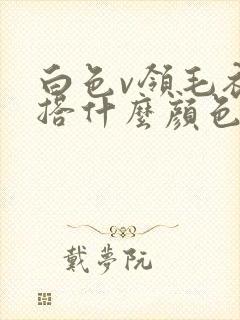 白色v領毛衣
搭什麼顏色
戴夢阮